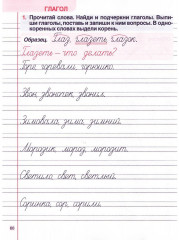 ГЛАГОЛ
1. Прочитай слова. Найди и подчеркни глаголы. Выпиши глаголы, поставь и запиши к ним вопросы. В однокоренных словах выдели корень.
Образец. Глаз, глазеть, глазок.
Глазеть – что делать?
Горе, горевали, горюшко.
Звон, звоночек, звонил.
Зимовала, зима, зимний.
Морозик, мороз, морозит.
Светило, свет, светлый.
Соринка, сор, сорили.
66